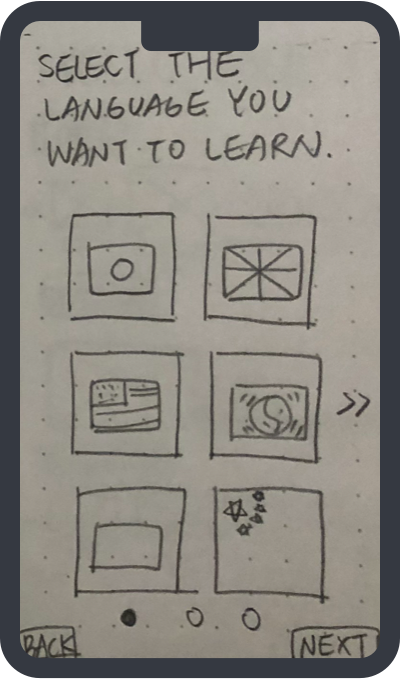 SELECT THE
LANGUAGE YOU
WANT TO LEARN.
>>
BACK
NEXT